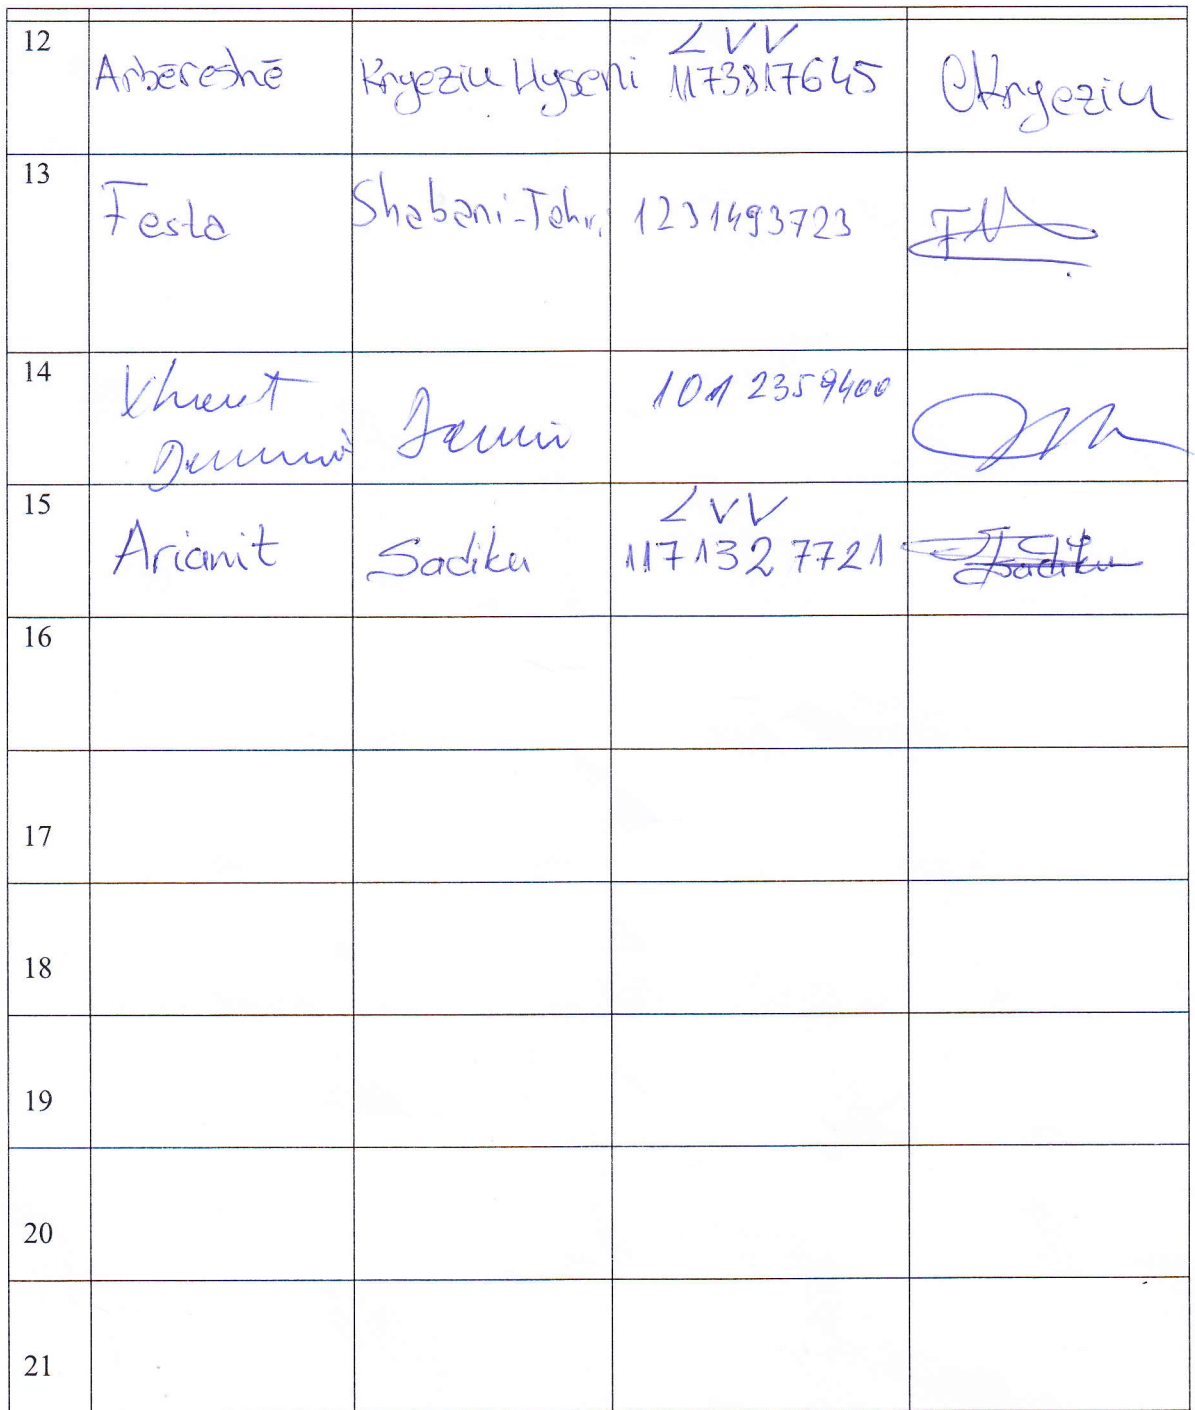 12 Arbëreshë Kryeziu Hyseni LVV 1173817645 Kryeziu
13 Festa Shabani-Tahiri 1231493723
14 1012359400
15 Arianit Sadiku LVV 1171327721 Sadiku
16
17
18
19
20
21